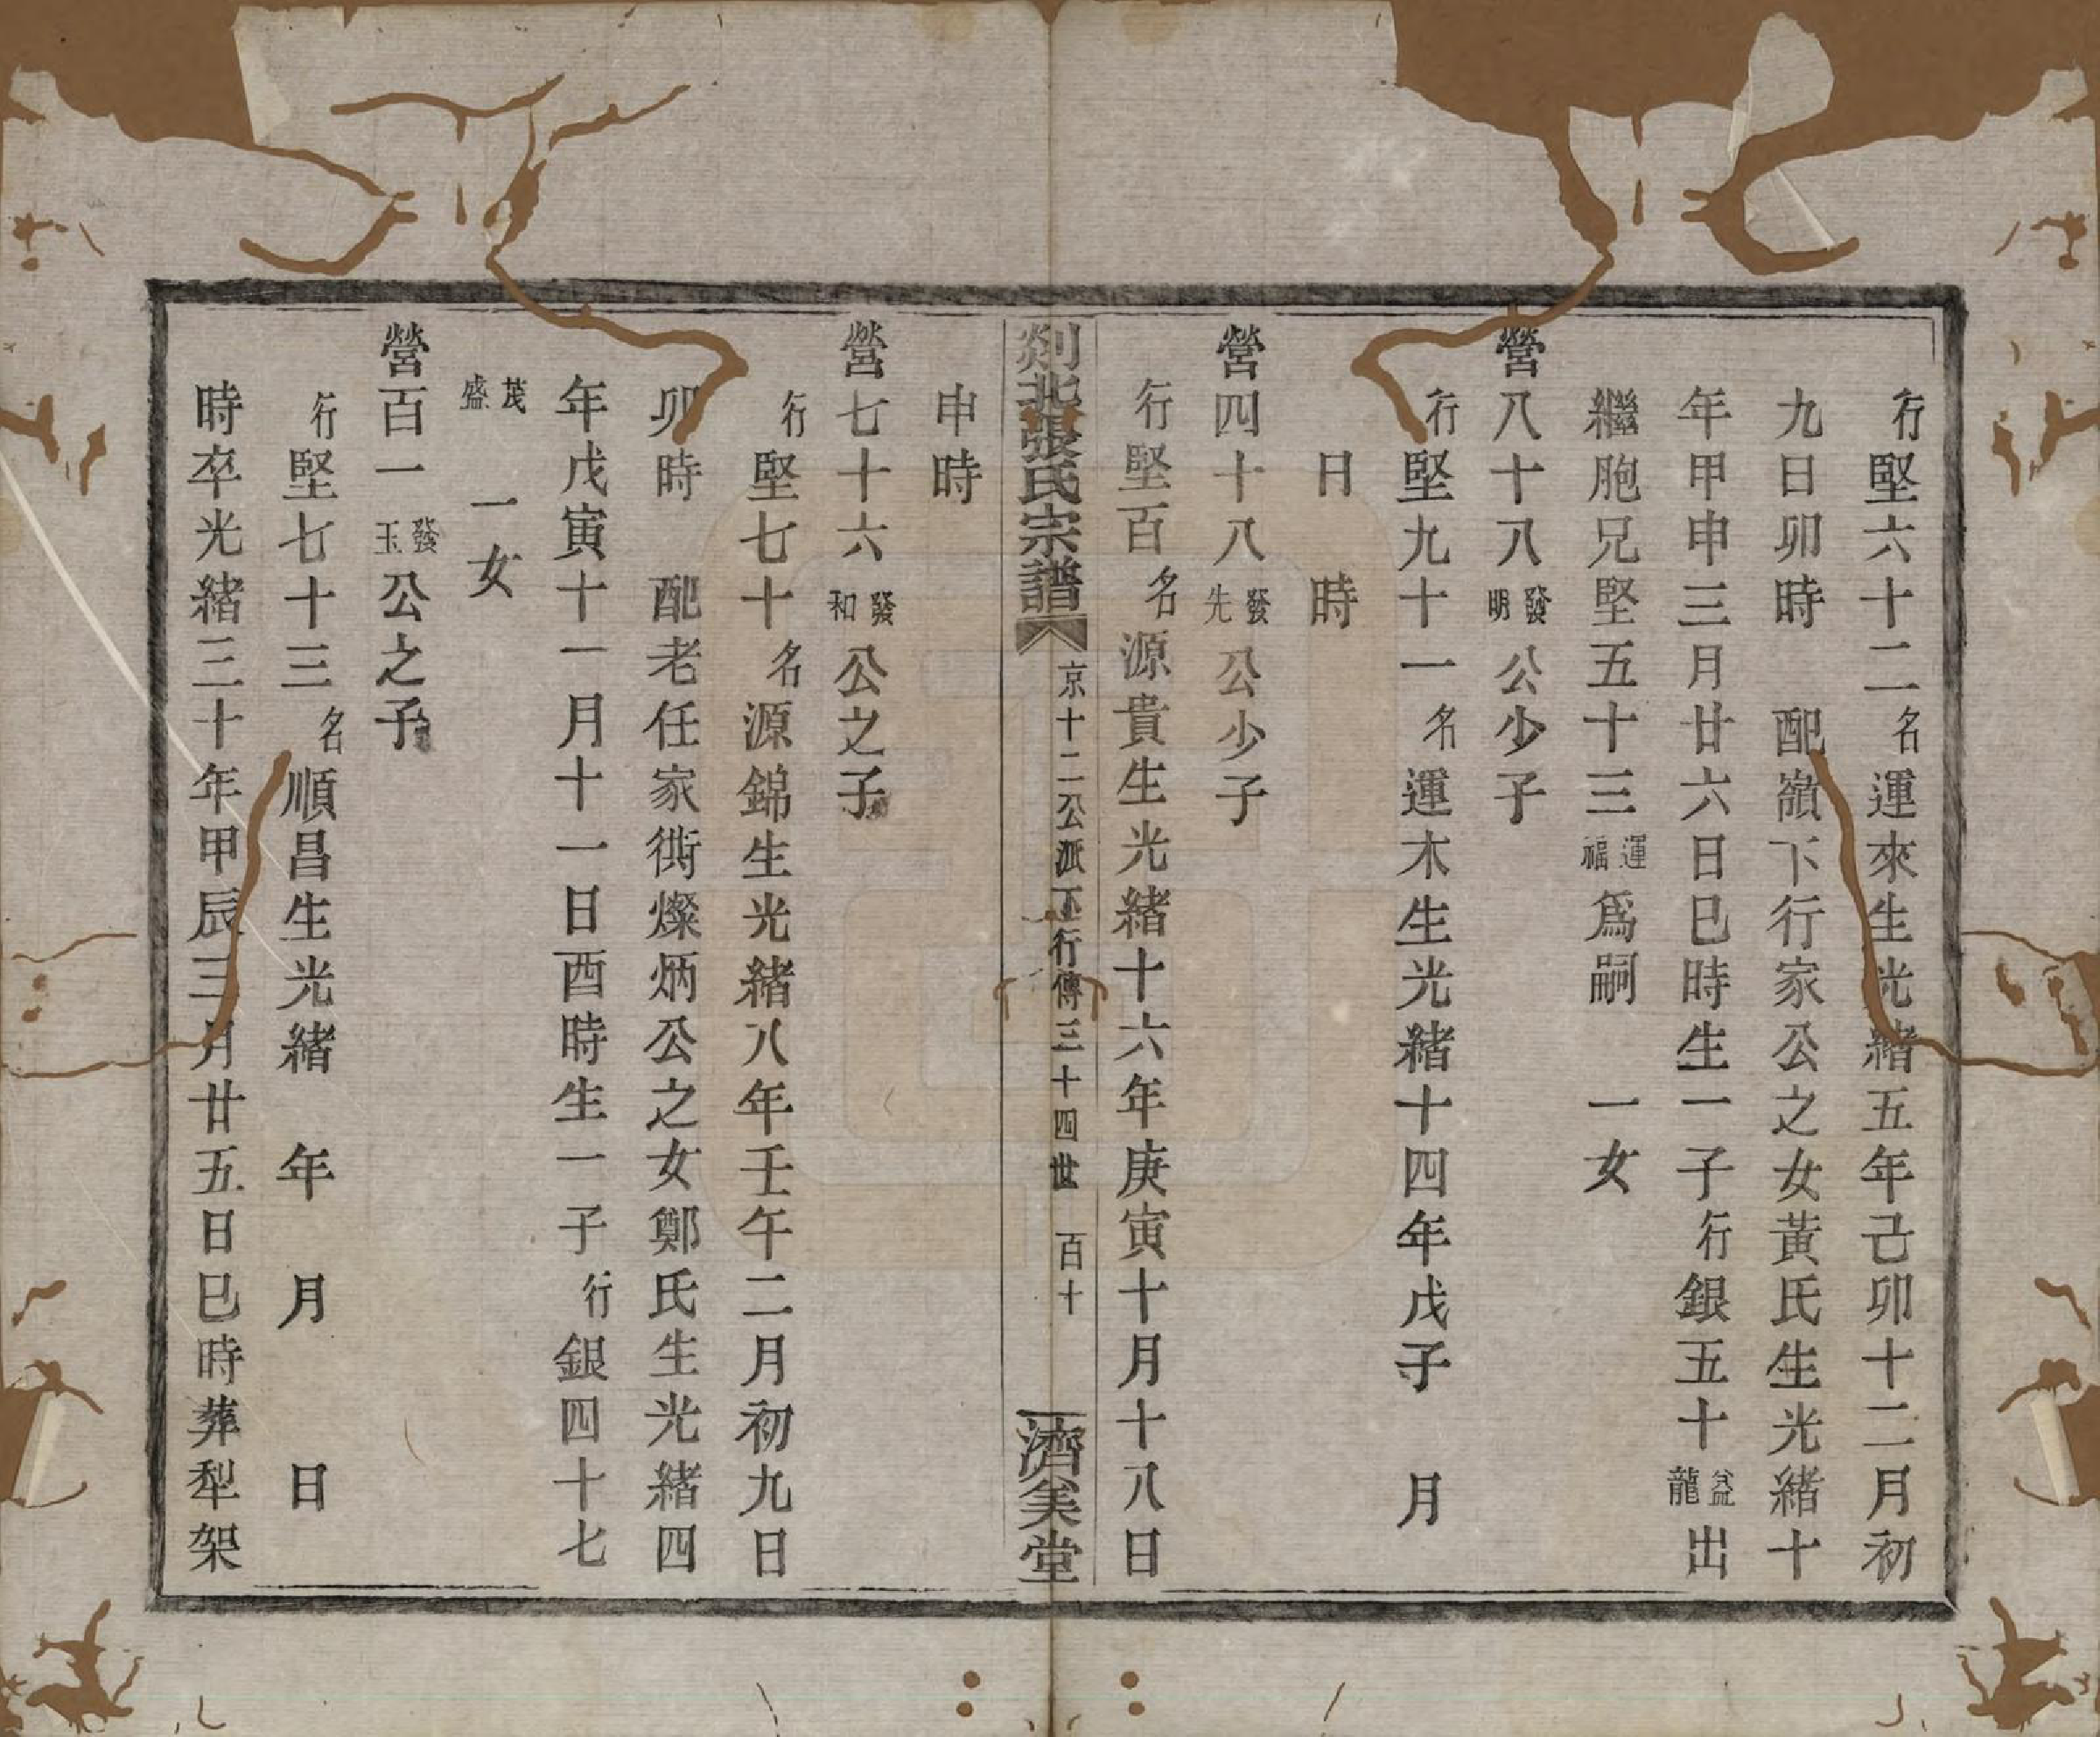 行堅六十二名運來生光緒五年己卯十二月初
九日卯時　配嶺下行家公之女黃氏生光緒十
年甲申三月廿六日巳時生一子行銀五十益龍出
繼胞兄堅五十三運福爲嗣　一女
營八十八發明公少子
行堅九十一名運木生光緒十四年戊子　月
日　時
營四十八發先公少子
行堅百名源貴生光緒十六年庚寅十月十八日
剡北張氏宗譜　京十二公派下行傳三十四世　百十　濟美堂
申時
營七十六發和公之子
行堅七十名源錦生光緒八年壬午二月初九日
卯時　配老任家衖燦炳公之女鄭氏生光緒四
年戊寅十一月十一日酉時生一子行銀四十七
茂盛　一女
營百一發玉公之子
行堅七十三名順昌生光緒　年　月　日
時卒光緒三十年甲辰三月廿五日巳時葬犁架